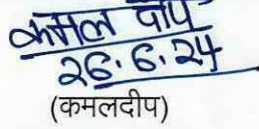 कमल दीप
26.6.24
(कमलदीप)